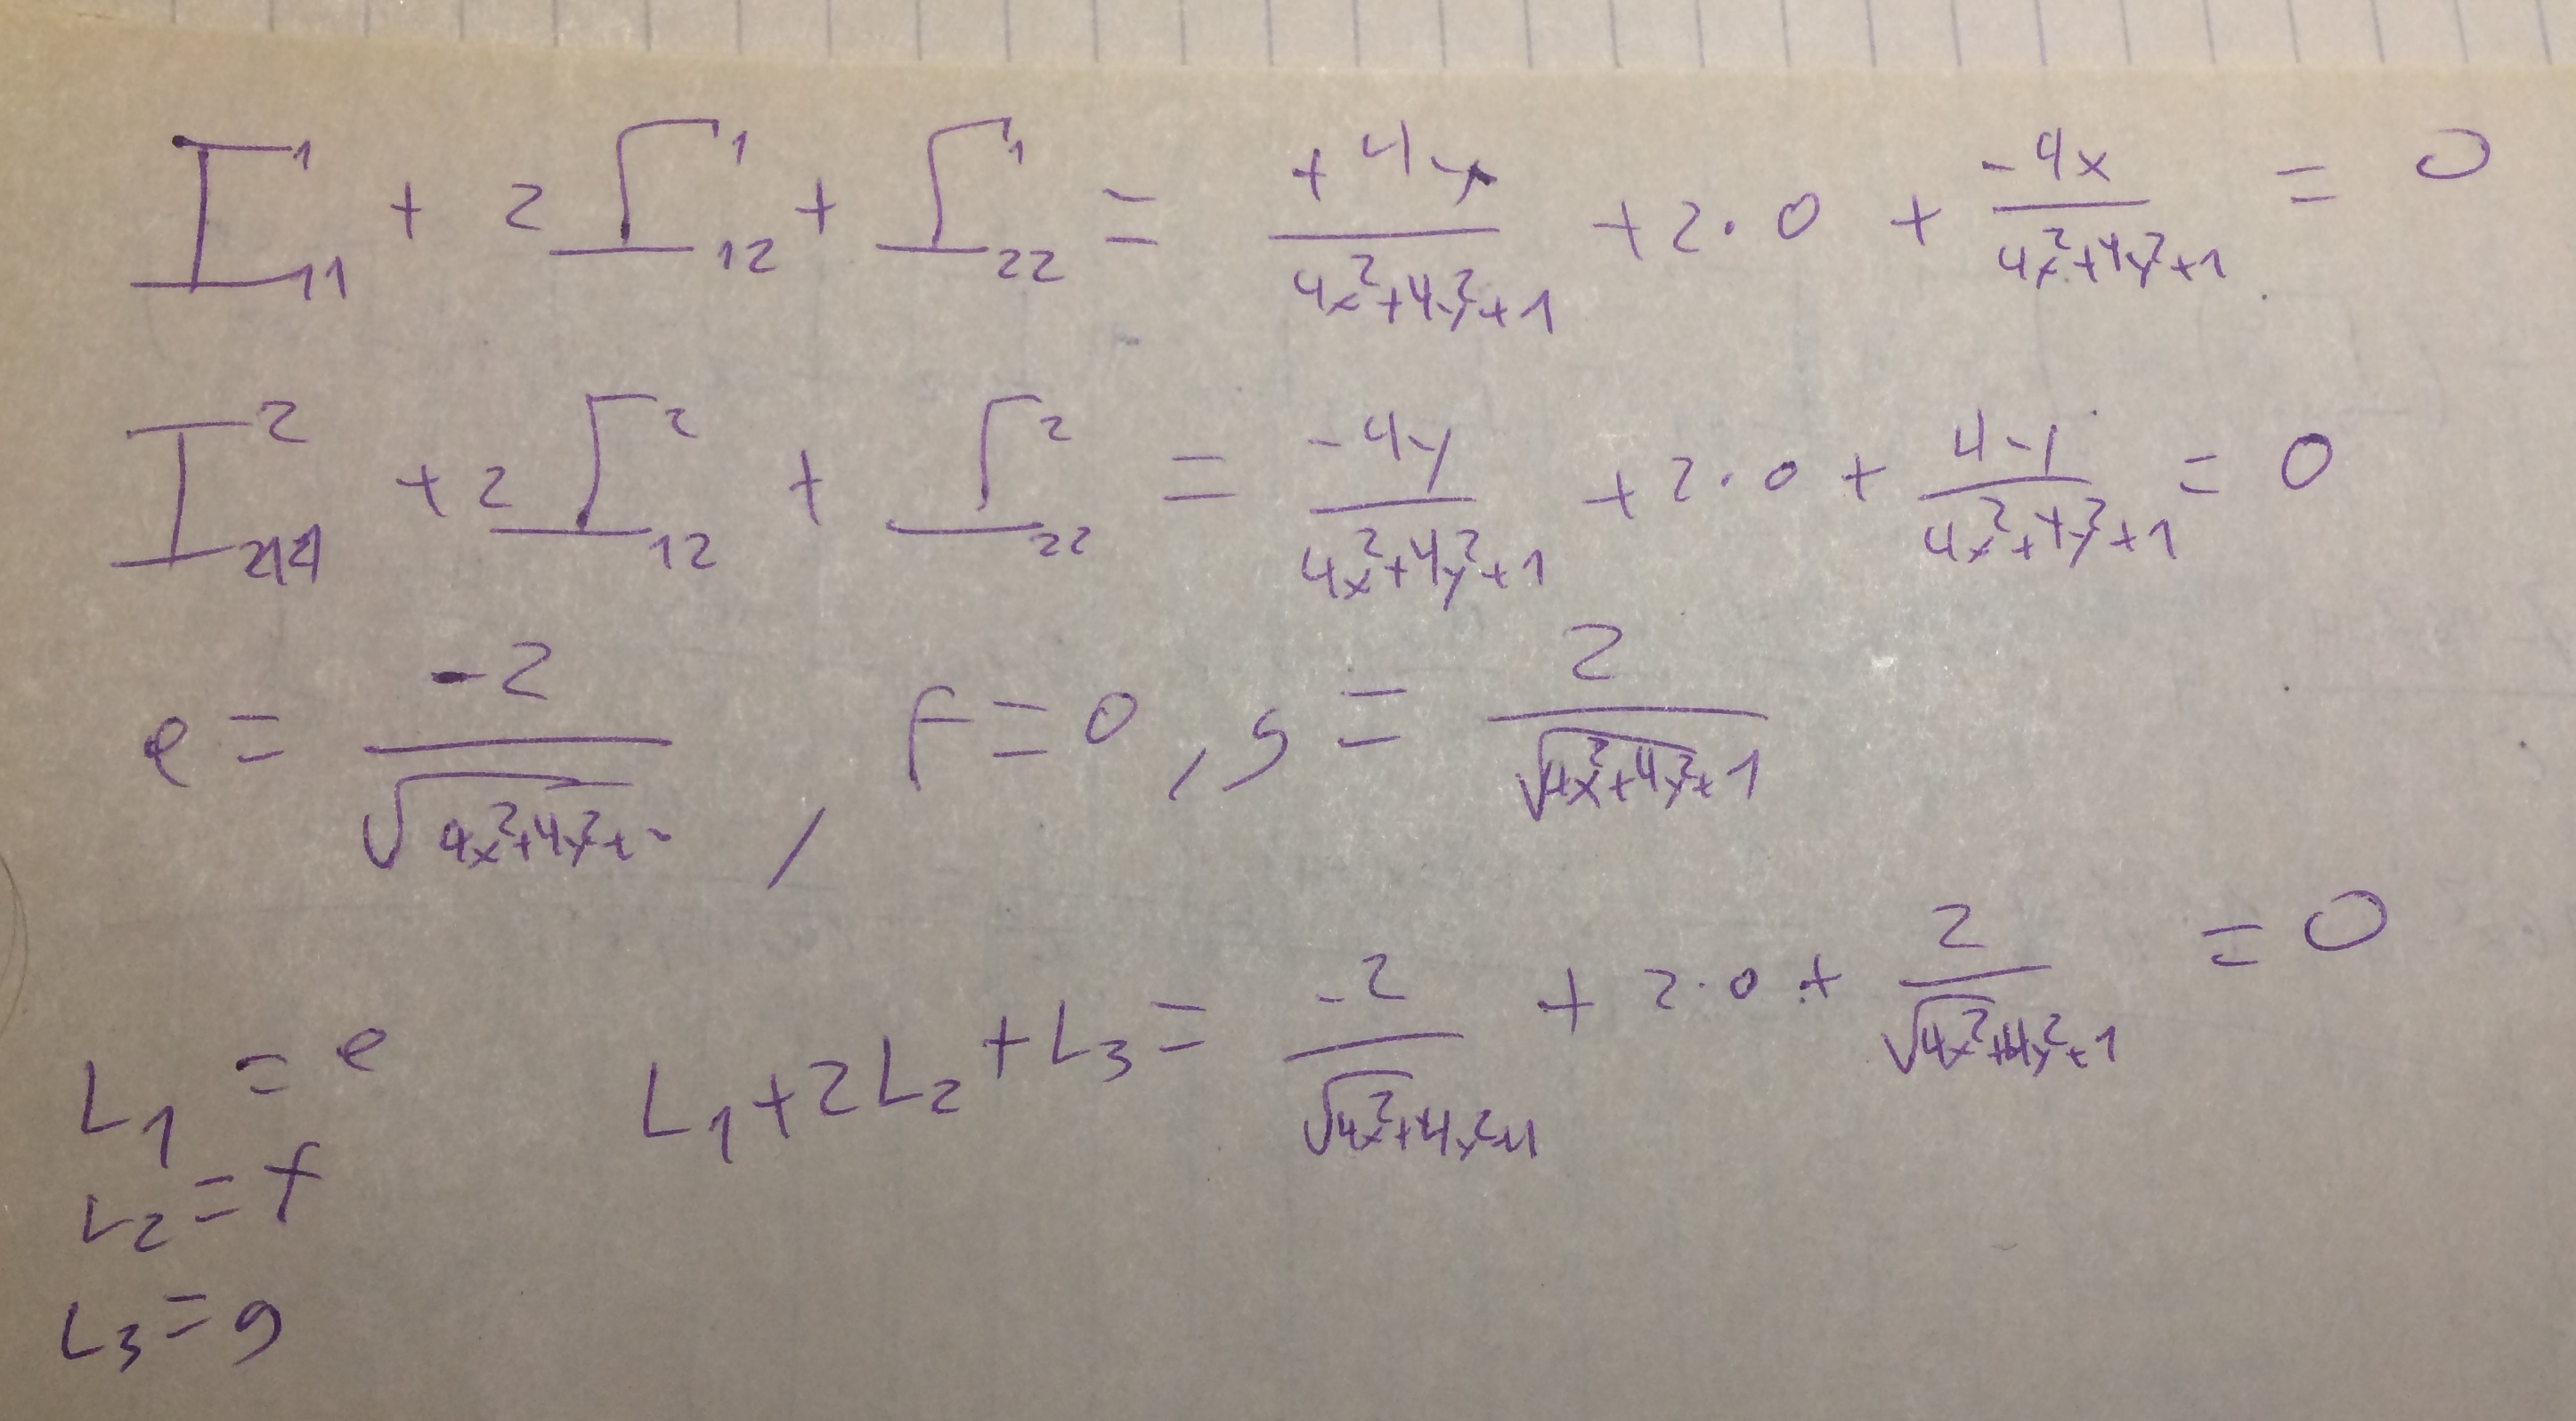 Γ¹₁₁ + 2Γ¹₁₂ + Γ¹₂₂ = +4x/(4x²+4y²+1) + 2·0 + -4x/(4x²+4y²+1) = 0
Γ²₁₁ + 2Γ²₁₂ + Γ²₂₂ = -4y/(4x²+4y²+1) + 2·0 + 4y/(4x²+4y²+1) = 0
e = -2/√(4x²+4y²+1) , f = 0 , g = 2/√(4x²+4y²+1)
L₁ = e L₁ + 2L₂ + L₃ = -2/√(4x²+4y²+1) + 2·0 + 2/√(4x²+4y²+1) = 0
L₂ = f
L₃ = g